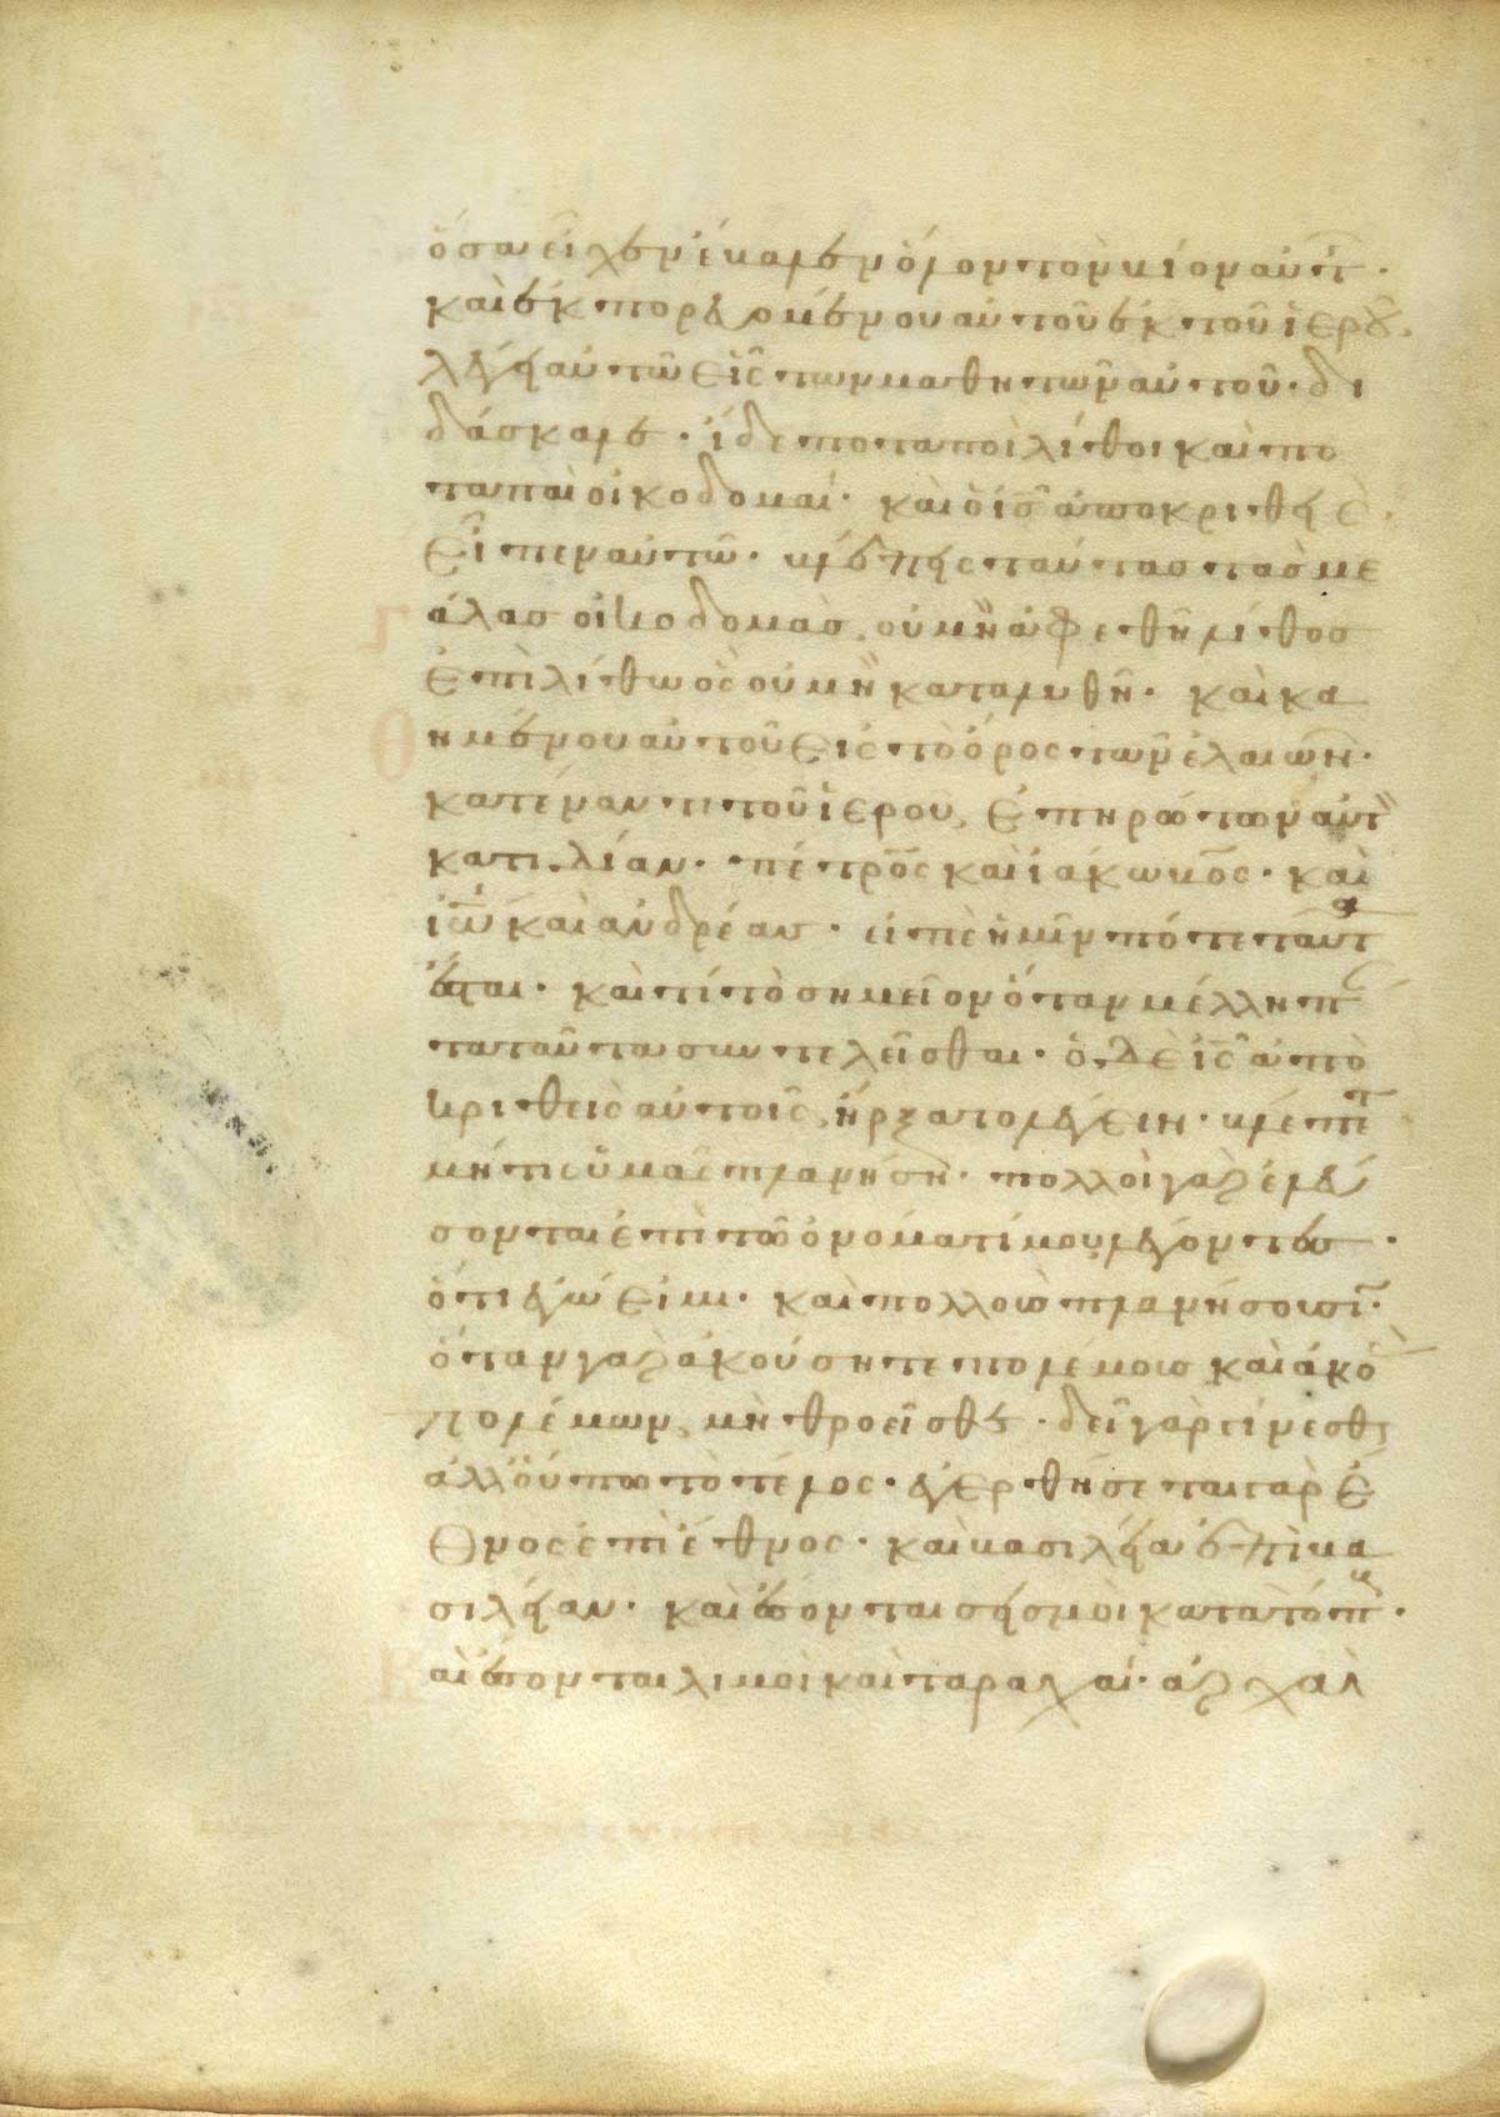 ὅσα εἶχεν ἔβαλεν ὅλον τὸν βίον αὐτ
καὶ ἐκπορευομένου αὐτοῦ ἐκ τοῦ ἱεροῦ,
λέγει αὐτῶ εἷς τῶν μαθητῶν αὐτοῦ· δι
δάσκαλε · ἴδε ποταποὶ λίθοι καὶ πο
ταπαὶ οἰκοδομαί · καὶ ὁ ις ἀποκριθεὶς
εἶπεν αὐτῶ · βλέπεις ταύτας τὰς με
γάλας οἰκοδομάς, οὐ μὴ ἀφεθῆ λίθος
ἐπὶ λίθω ὃς οὐ μὴ καταλυθῆ · καὶ κα
θημένου αὐτοῦ εἰς τὸ ὄρος τῶν ἐλαιῶν ·
κατέναντι τοῦ ἱεροῦ, ἐπηρώτων αὐτ
κατιδίαν · πέτρος καὶ ἰάκωβος · καὶ
ιω καὶ ἀνδρέας · εἰπὲ ἡμῖν πότε ταῦτα
ἔσται · καὶ τί τὸ σημεῖον ὅταν μέλλη π
τα ταῦτα συντελεῖσθαι · ὁ δὲ ις ἀπο
κριθεὶς αὐτοῖς, ἤρξατο λέγειν · βλέπετ
μή τις ὑμᾶς πλανήση · πολλοὶ γὰρ ἐλεύ
σονται ἐπὶ τῶ ὀνόματί μου λέγοντες ·
ὅτι ἐγώ εἰμι · καὶ πολλοὺς πλανήσουσι ·
ὅταν γὰρ ἀκούσητε πολέμους καὶ ἀκοὰς
πολέμων, μὴ θροεῖσθε · δεῖ γὰρ γίνεσθαι
ἀλλ' οὔπω τὸ τέλος · ἐγερθήσεται γὰρ ἔ
θνος ἐπὶ ἔθνος · καὶ βασιλεία ἐπὶ βα
σιλείαν · καὶ ἔσονται σεισμοὶ κατὰ τόπους ·
καὶ ἔσονται λιμοὶ καὶ ταραχαί · ἀρχαὶ